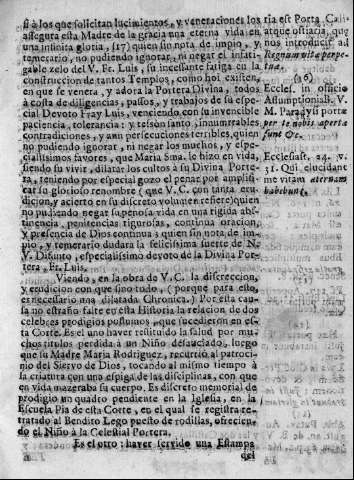 si à los que solicitan lucimientos, y veneraciones los
assegura esta Madre de la gracia una eterna vida en
una infinita gloria, (17) quien sin nota de impio, y
temerario, no pudiendo ignorar, ni negar el infati-
gable zelo del V. Fr. Luis, su incessante fatiga en la
construccion de tantos Templos, como hoi existen,
en que se venera, y adora la Portera Divina, todos
à costa de diligencias, passos, y trabajos de su espe-
cial Devoto Fray Luis, venciendo con su invencible
paciencia, tolerancia, y tesson santo, innumerables
contradicciones, y aun persecuciones terribles, quien
no pudiendo ignorar, ni negar los muchos, y espe-
cialissimos favores, que Maria Sma. le hizo en vida,
siendo su vivir, dilatar los cultos à su Divina Porte-
ra, teniendo por especial gozo el penar por amplifi-
car su glorioso renombre (que V. C. con tanta eru-
dicion, y acierto en su discreto volumen refiere) quien
no pudiendo negar su penosa vida en una rigida abs-
tinencia, penitencias rigurosas, continua oracion,
y presencia de Dios continua: quien sin nota de im-
pio, y temerario dudara la felicissima suerte de N.
V. Difunto, especialissimo devoto de la Divina Por-
tera, Fr. Luis.
Viendo, en la obra de V. C. la discrecion,
y erudicion con que sino todo, (porque para esto,
es necesario una dilatada Chronica) Por esta cau-
sa no estraño falte en esta Historia la relacion de dos
celebres prodigios postumos, que sucedieron en es-
ta Corte. Es el uno haver restituido la salud por mu-
chos titulos perdida à un Niño desauciado, luego
que su Madre Maria Rodriguez, recurriò al patroci-
nio del Siervo de Dios, tocando al mismo tiempo à
la criatura con una espiga de las disciplinas, con que
en vida mazeraba su cuerpo. Es discreto memorial de
prodigio un quadro pendiente en la Iglesia, en la
Escuela Pia de esta Corte, en el qual se registra re-
tratado al Bendito Lego puesto de rodillas, ofrecien-
do el Niño à la Celestial Portera.
Es el otro: haver servido una Estampa
del
ria est Porta Cæli
atque ostiaria, quæ
nos introducit ad
Regnum vitæ perpe-
tuæ.
(16)
Eccles. in officio
Assumptionis B. V.
M. Paradysi portæ
per te nobis apertæ
sunt &c.
Ecclesiast. 24. v.
31. Qui elucidant
me vitam æternam
habebunt.